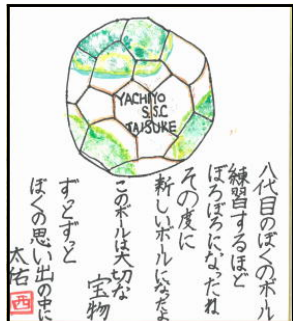 YACHIYO
S.S.C
TAISUKE
八代目のぼくのボール
練習するほど
ぼろぼろになったね
その度に
新しいボールになったよ
このボールは大切な
宝物
ずっとずっと
ぼくの思い出の中に
太佑
西